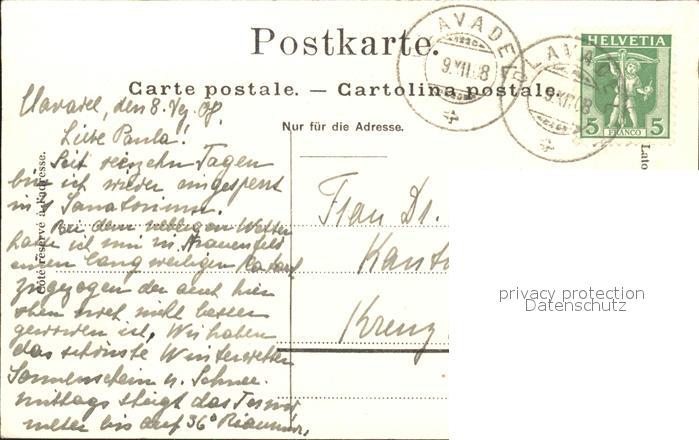 Postkarte.
Carte postale. — Cartolina postale.
Nur für die Adresse.
Côté réservé à l'adresse.
CLAVADEL
9.XII.08
CLAVADEL
9.XII.08
HELVETIA
5 FRANCO 5
Lato
Clavadel, den 8. Dez. 08.
Liebe Paula!
Seit Tagen
bin ich wieder eingesperrt
in's Sanatorium.
Bei dem nebligen Wetter
habe ich mir in Frauenfeld
einen langweiligen Katarrh
zugezogen der auch hier
oben noch nicht besser
geworden ist. Wir haben
das schönste Winterwetter
Sonnenschein u. Schnee.
Mittags steigt das Termo
meter bis auf 36° Réaumur.
Frau Dr.
Kant
Kreuz
privacy protection
Datenschutz